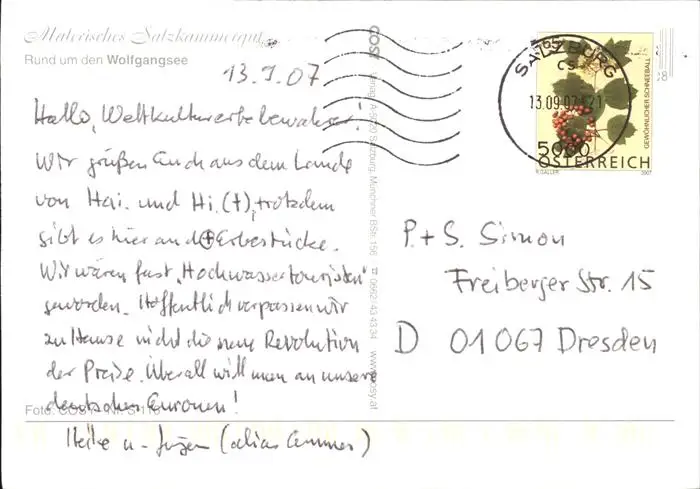 Malerisches Salzkammergut
Rund um den Wolfgangsee
13.9.07
Hallo, Weltkulturerbebewahrer!
Wir grüßen Euch aus dem Lande
von Hai. und Hi. (†), trotzdem
gibt es hier and Erbestücke.
Wir wären fast "Hochwassertouristen"
geworden. Hoffentlich verpassen wir
zu Hause nicht die neue Revolution
der Preise. Überall will man an unsere
deutschen Euronen!
Heike u. Jürgen (alias
Foto: COSY
COSY Verlag, A-5020 Salzburg, Münchner BStr. 156 ☎ 0662/43 43 34 www.cosy.at
SALZBURG
13.09.07
GEWÖHNLICHER SCHNEEBALL
5000
ÖSTERREICH
2007
P. + S. Simon
Freiberger Str. 15
D 01067 Dresden